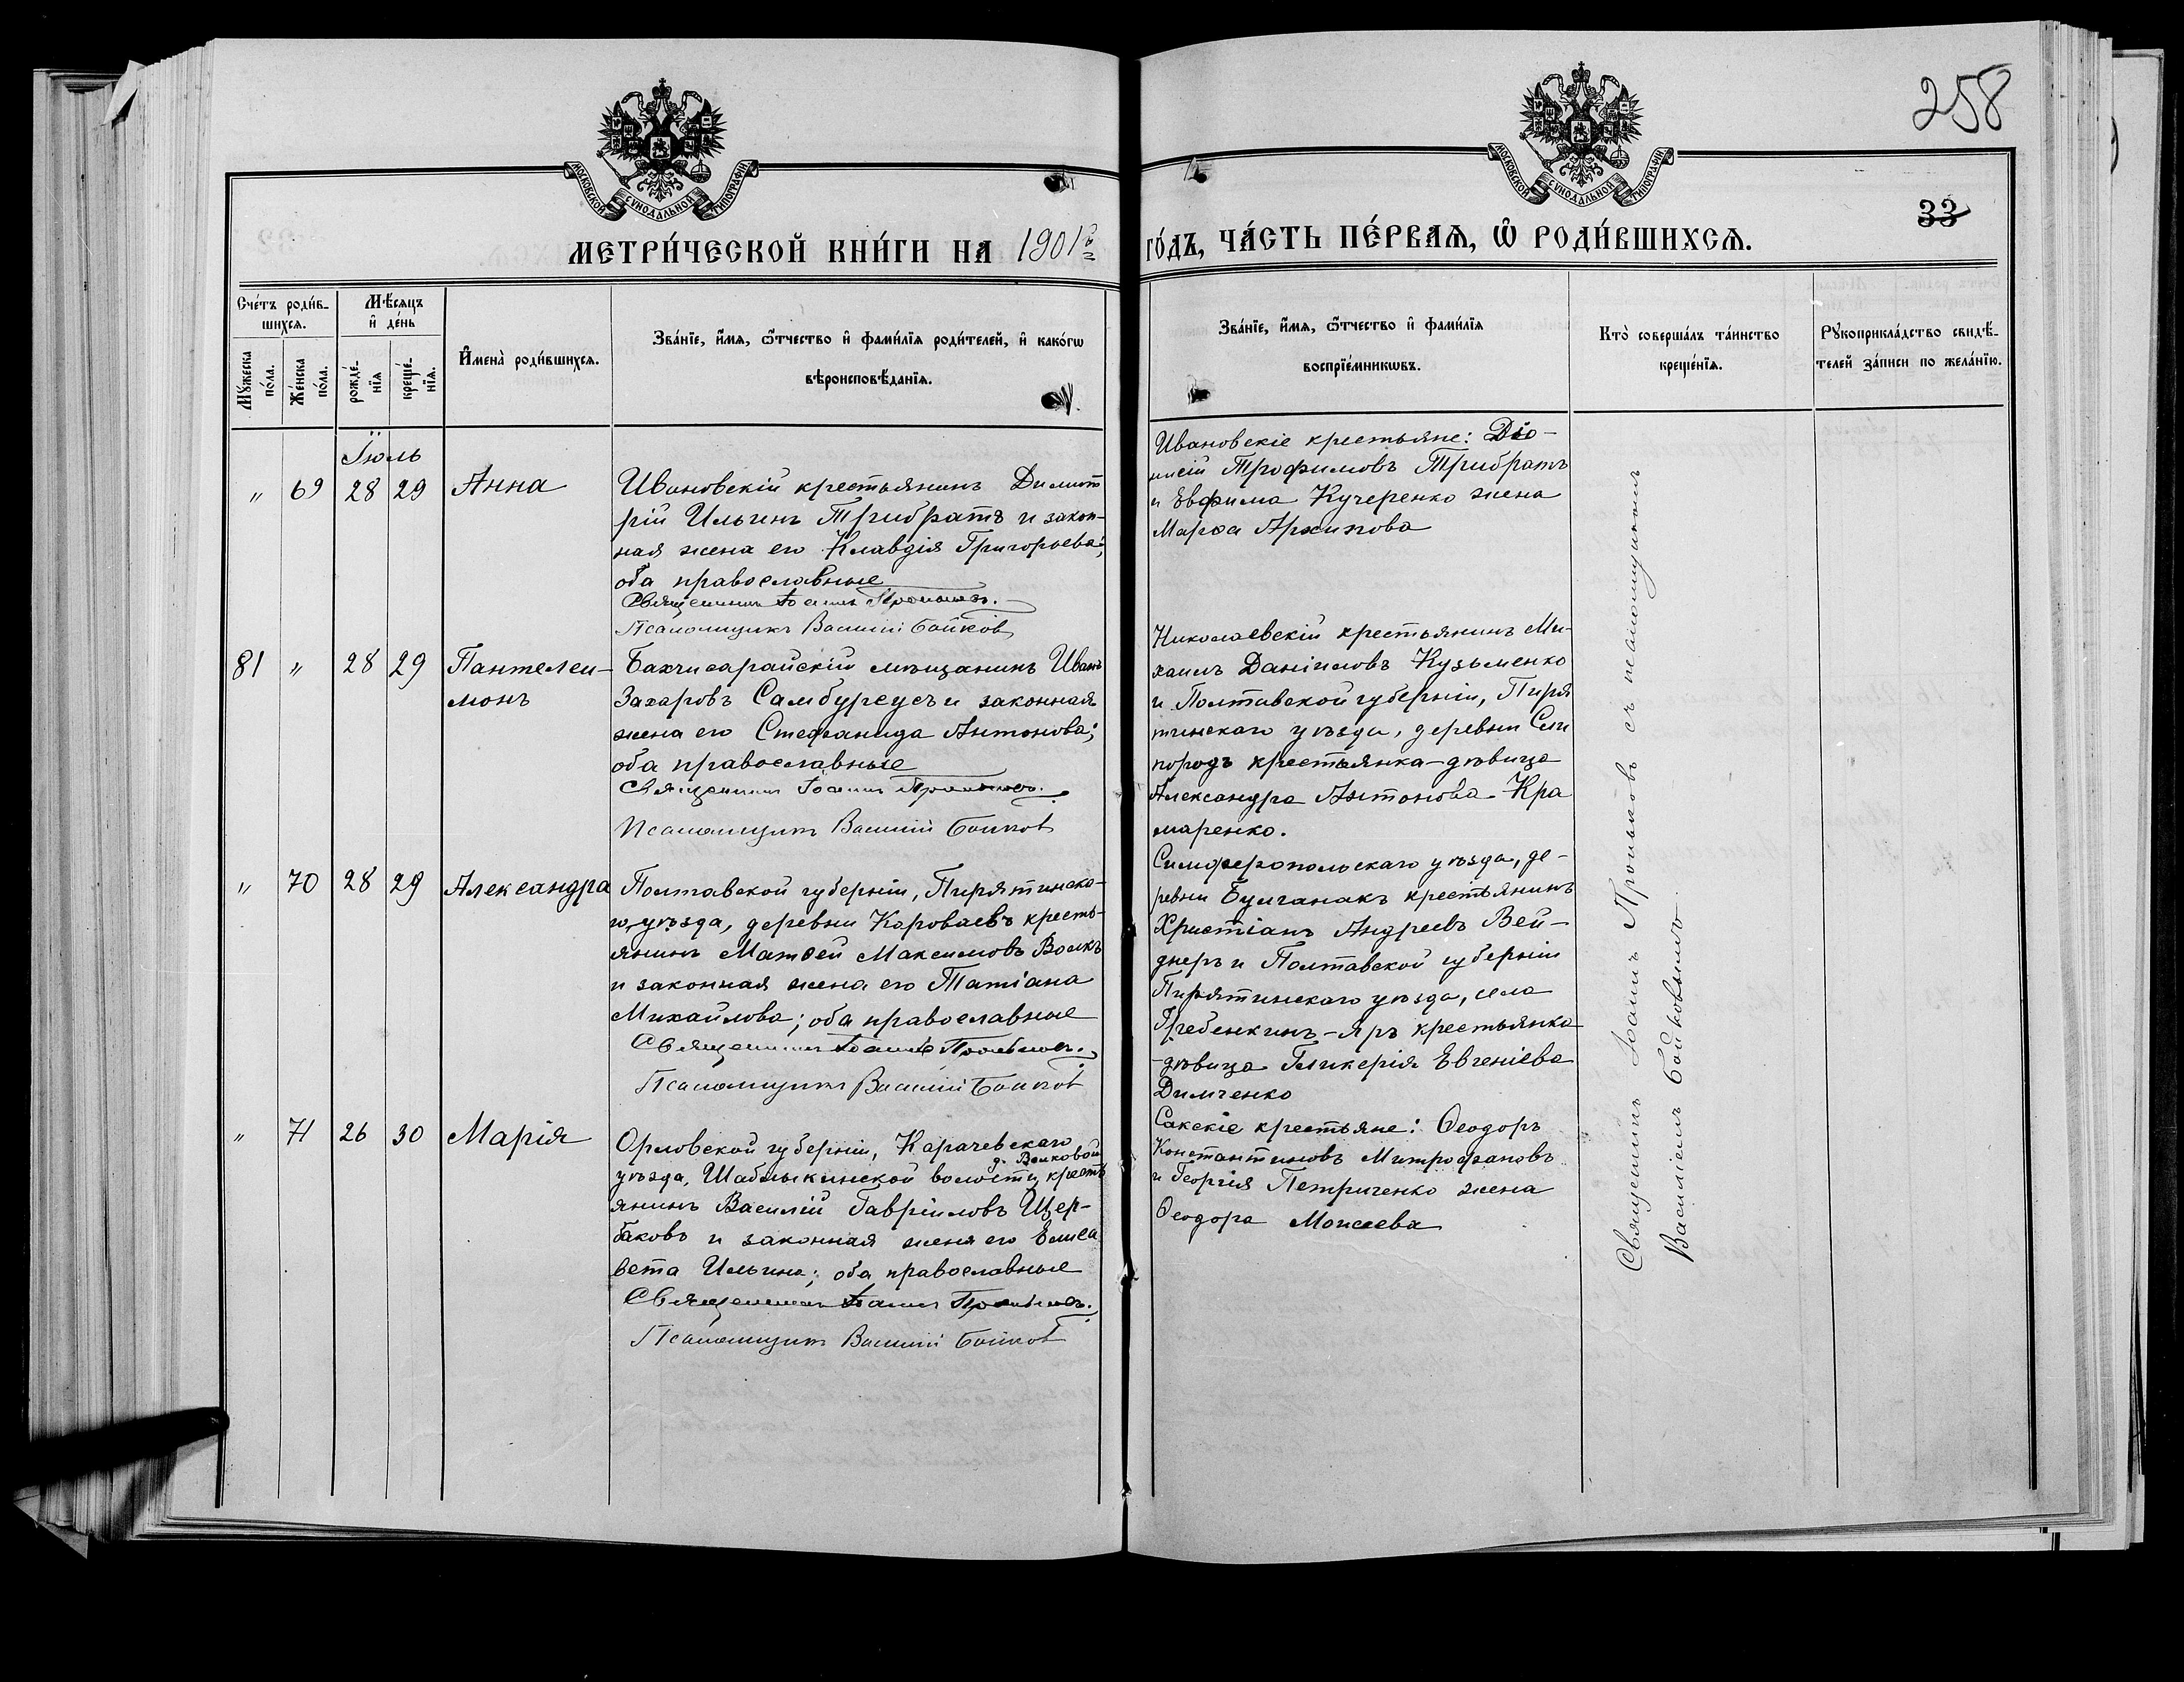 258
МОСКОВСКОЙ СѴНОДАЛЬНОЙ ТИПОГРАФІИ
МОСКОВСКОЙ СѴНОДАЛЬНОЙ ТИПОГРАФІИ
33
МЕТРИ́ЧЕСКОЙ КНИ́ГИ НА 1901й
ГО́ДЪ, ЧА́СТЬ ПЕ́РВАѦ, Ѽ РОДИ́ВШИХСѦ.
Сче́тъ роди́в-
шихсѧ.
Мꙋ́жеска
по́ла.
Же́нска
по́ла.
Мѣ́сѧцъ
и҆ де́нь
рожде́-
нїѧ
креще́-
нїѧ.
И҆мена̀ роди́вшихсѧ.
Зва́нїе, и҆́мѧ, ѻ҆́тчество и҆ фами́лїѧ роди́телей, и҆ како́гѡ
вѣроисповѣ́данїѧ.
Зва́нїе, и҆́мѧ, ѻ҆́тчество и҆ фами́лїѧ
воспрїе́мникѡвъ.
Кто̀ соверша́лъ та́инство
креще́нїѧ.
Рꙋкоприкла́дство свидѣ́-
телей за́писи по жела́нїю.
Іюль
" 69 28 29 Анна
Ивановскій крестьянинъ Димит
рій Ильинъ Трибратъ и закон-
ная жена его Клавдія Григорьева;
оба православные
Священникъ Іоаннъ Проньковъ.
Псаломщикъ Василій Бойковъ
Ивановскіе крестьяне: Діо-
нисій Трофимовъ Трибратъ
и Евфима Кучеренко жена
Марѳа Архипова
81 " 28 29 Пантелеи-
монъ
Бахчисарайскій мѣщанинъ Иванъ
Захаровъ Самбурсусъ и законная
жена его Стефанида Антонова;
оба православные
Священникъ Іоаннъ Проньковъ.
Псаломщикъ Василій Бойковъ
Николаевскій крестьянинъ Ми-
хаилъ Даніиловъ Кузьменко
и Полтавской губерніи, Пиря
тинскаго уѣзда, деревни Сли
породъ крестьянка-дѣвица
Александра Антонова Кра
маренко.
" 70 28 29 Александра
Полтавской губерніи, Пирятинска-
го уѣзда, деревни Короваевъ кресть-
янинъ Матѳей Максимовъ Волкъ
и законная жена его Татіана
Михайлова; оба православные
Священникъ Іоаннъ Проньковъ.
Псаломщикъ Василій Бойковъ
Симферопольскаго уѣзда, де-
ревни Булганакъ крестьянинъ
Христіанъ Андреевъ Вей-
днеръ и Полтавской губерніи
Пирятинскаго уѣзда, села
Гребенкинъ-Яръ крестьянка
-дѣвица Гликерія Евгеніева
Димченко
" 71 26 30 Марія
Орловской губерніи, Карачевскаго
д. Волковой
уѣзда, Шаблыкинской волости, кресть
янинъ Василій Гавріиловъ Щер-
баковъ и законная жена его Елиса
вета Ильина; оба православные
Священникъ Іоаннъ Проньковъ.
Псаломщикъ Василій Бойковъ
Сакскіе крестьяне: Ѳеодоръ
Константиновъ Митрофановъ
и Георгія Петриченко жена
Ѳеодора Моисеева
Священникъ Іоаннъ Проньковъ съ псаломщикомъ
Василіемъ Бойковымъ